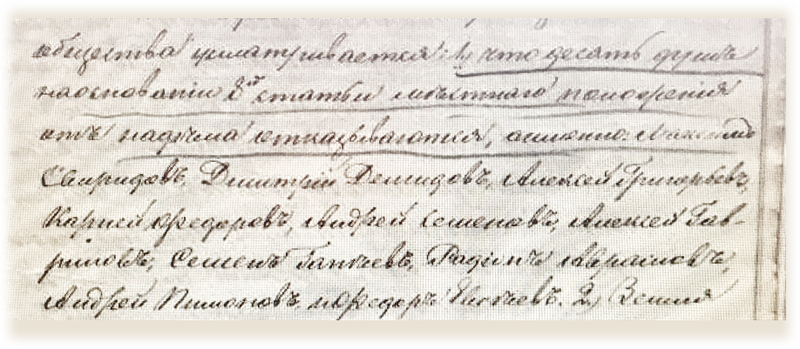 общества усматривается: 1) что десять душъ
на основаніи 8й статьи мѣстнаго положенія
отъ надѣла отказываются, а именно: Максимъ
Свиридовъ, Димитрій Демидовъ, Алексѣй Григорьевъ,
Карпей Ѳедоровъ, Андрей Семеновъ, Алексѣй Гав-
риловъ, Семенъ Радіонъ Авраамовъ,
Андрей Пимоновъ, и Ѳедоръ 2) Земля